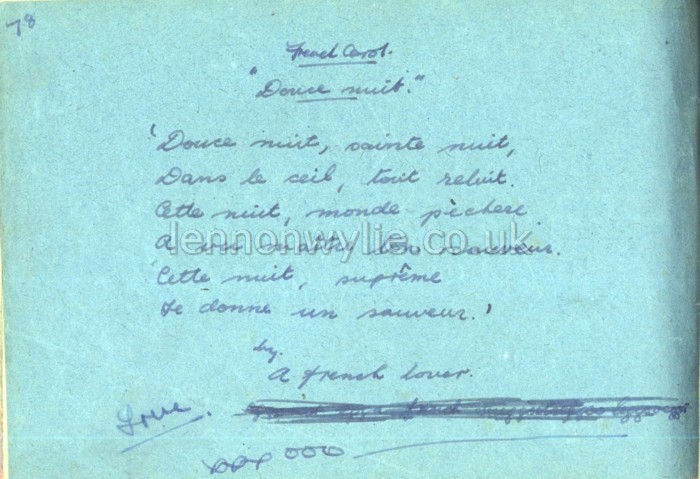 78
French Carol.
"Douce nuit."
'Douce nuit, sainte nuit,
Dans le ceil, tout reluit.
Cette nuit, monde pèchere
A vu naître ton sauveur.
Cette nuit, suprême
Te donne un sauveur.'
by.
A french lover.
Love.
xxx ooo
lennonwylie.co.uk